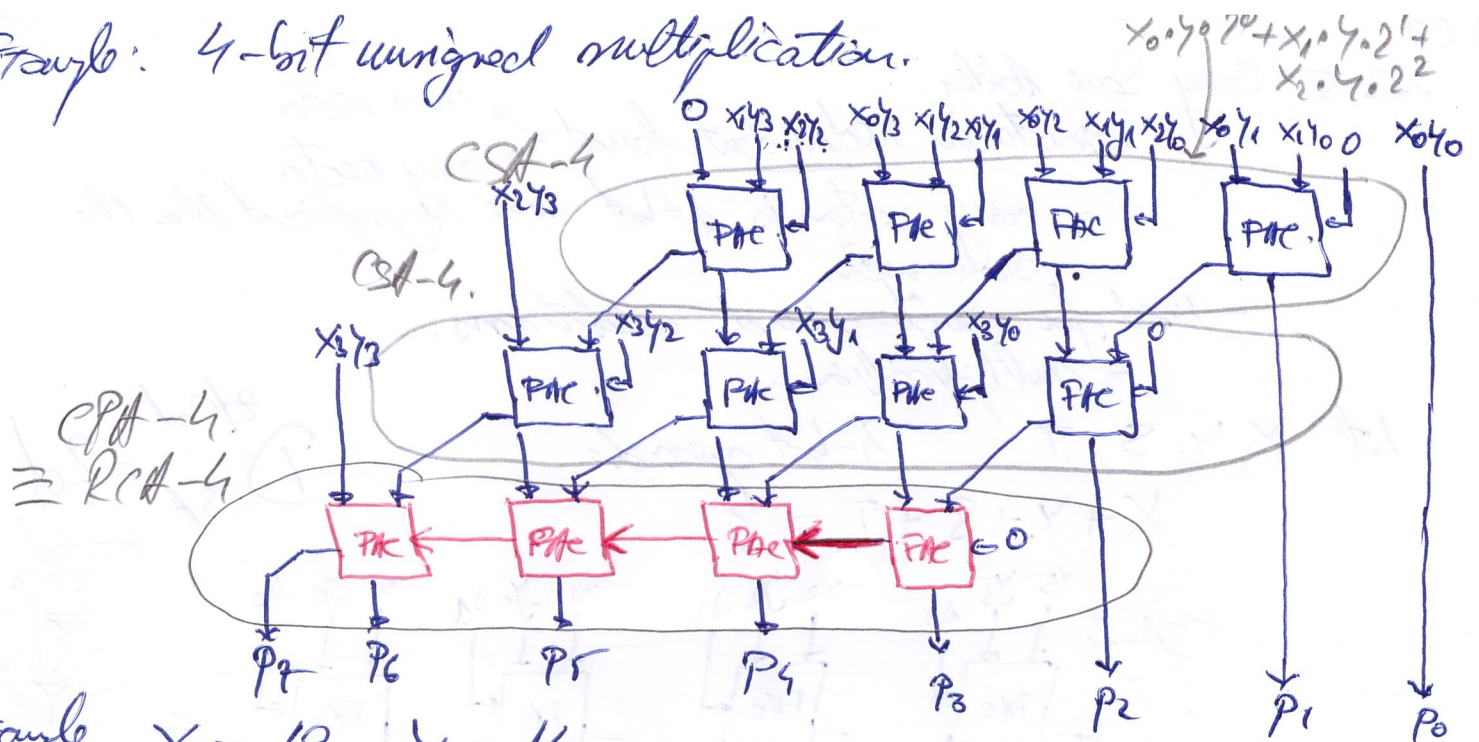 Example: 4-bit unsigned multiplication.
x₀·y·2⁰+x₁·y·2¹+
x₂·y·2²
0 x₁y₃ x₂y₂ x₀y₃ x₁y₂ x₂y₁ x₀y₂ x₁y₁ x₂y₀ x₀y₁ x₁y₀ 0 x₀y₀
CSA-4
x₂y₃
FAC FAC FAC FAC
CSA-4.
x₃y₃ x₃y₂ x₃y₁ x₃y₀ 0
FAC FAC FAC FAC
CPA-4.
≡ RCA-4
FAC FAC FAC FAC 0
P₇ P₆ P₅ P₄ P₃ P₂ P₁ P₀